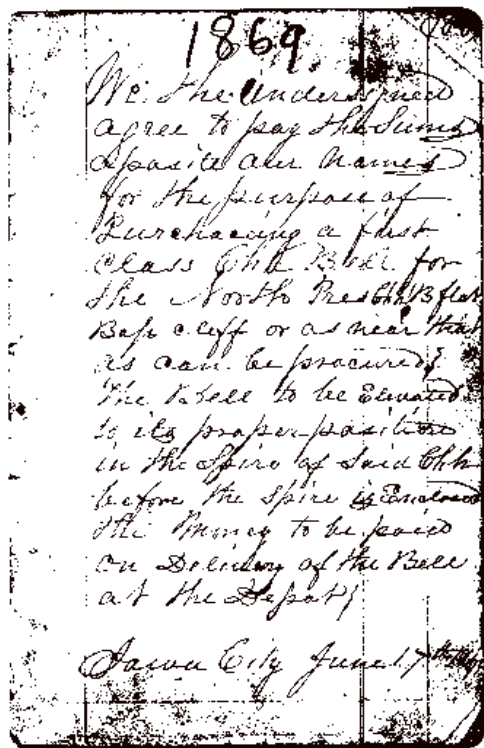 1869
We. The Undersigned
agree to pay the Sums
oposite our Names
for the purpose of
Purchacing a first
Class Chh Bell for
the North Presbh B flat
Bass cleff or as near that
as can be procured,
The Bell to be Elivated
to its proper position
in the Spire of Said Chh
before the Spire is Enclosed
the Money to be paid
on Delivery of the Bell
at the Depot,
Iowa City June 17th